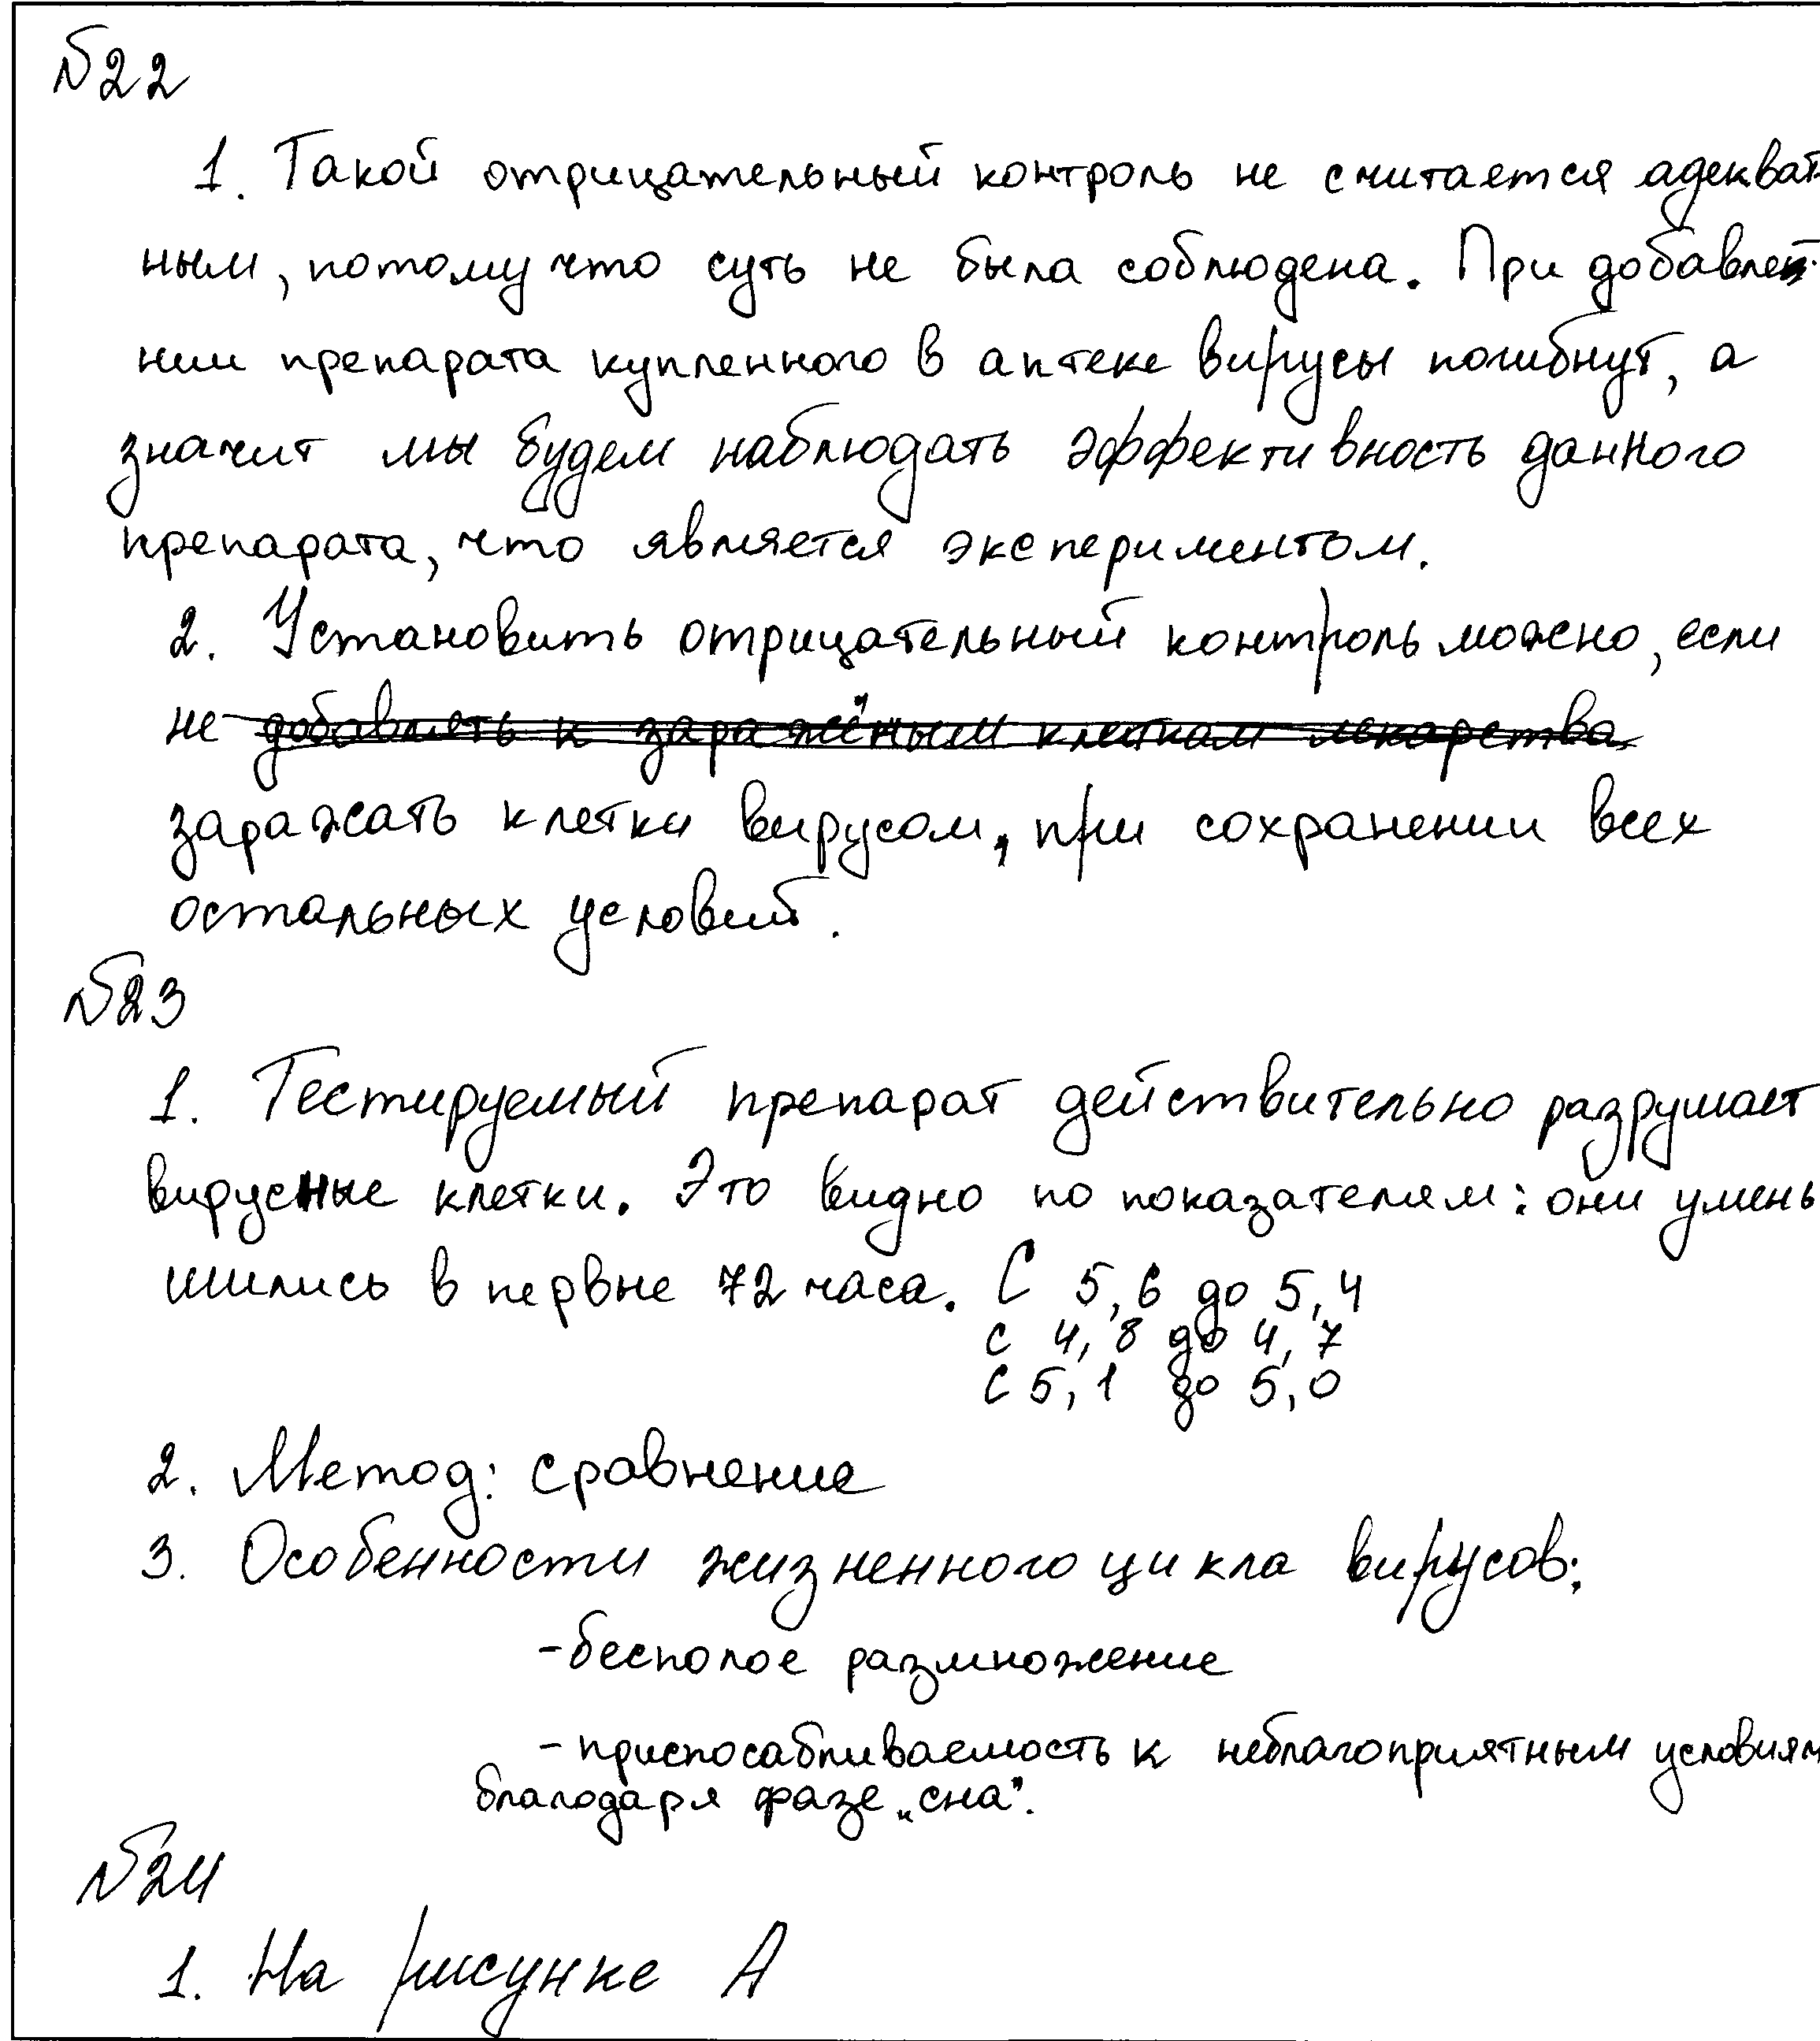 №22
1. Такой отрицательный контроль не считается адекват-
ным, потому что суть не была соблюдена. При добавле-
нии препарата купленного в аптеке вирусы погибнут, а
значит мы будем наблюдать эффективность данного
препарата, что является экспериментом.
2. Установить отрицательный контроль можно, если
не добавлять к заражёным клеткам лекарства
заражать клетки вирусом, при сохранении всех
остальных условий.
№23
1. Тестируемый препарат действительно разрушает
вирусные клетки. Это видно по показателям: они умень
шились в первые 72 часа. С 5,6 до 5,4
с 4,8 до 4,7
с 5,1 до 5,0
2. Метод: сравнение
3. Особенности жизненного цикла вирусов:
-бесполое размножение
-приспосабливаемость к неблагоприятным условиям
благодаря фазе „сна".
№24
1. На рисунке А